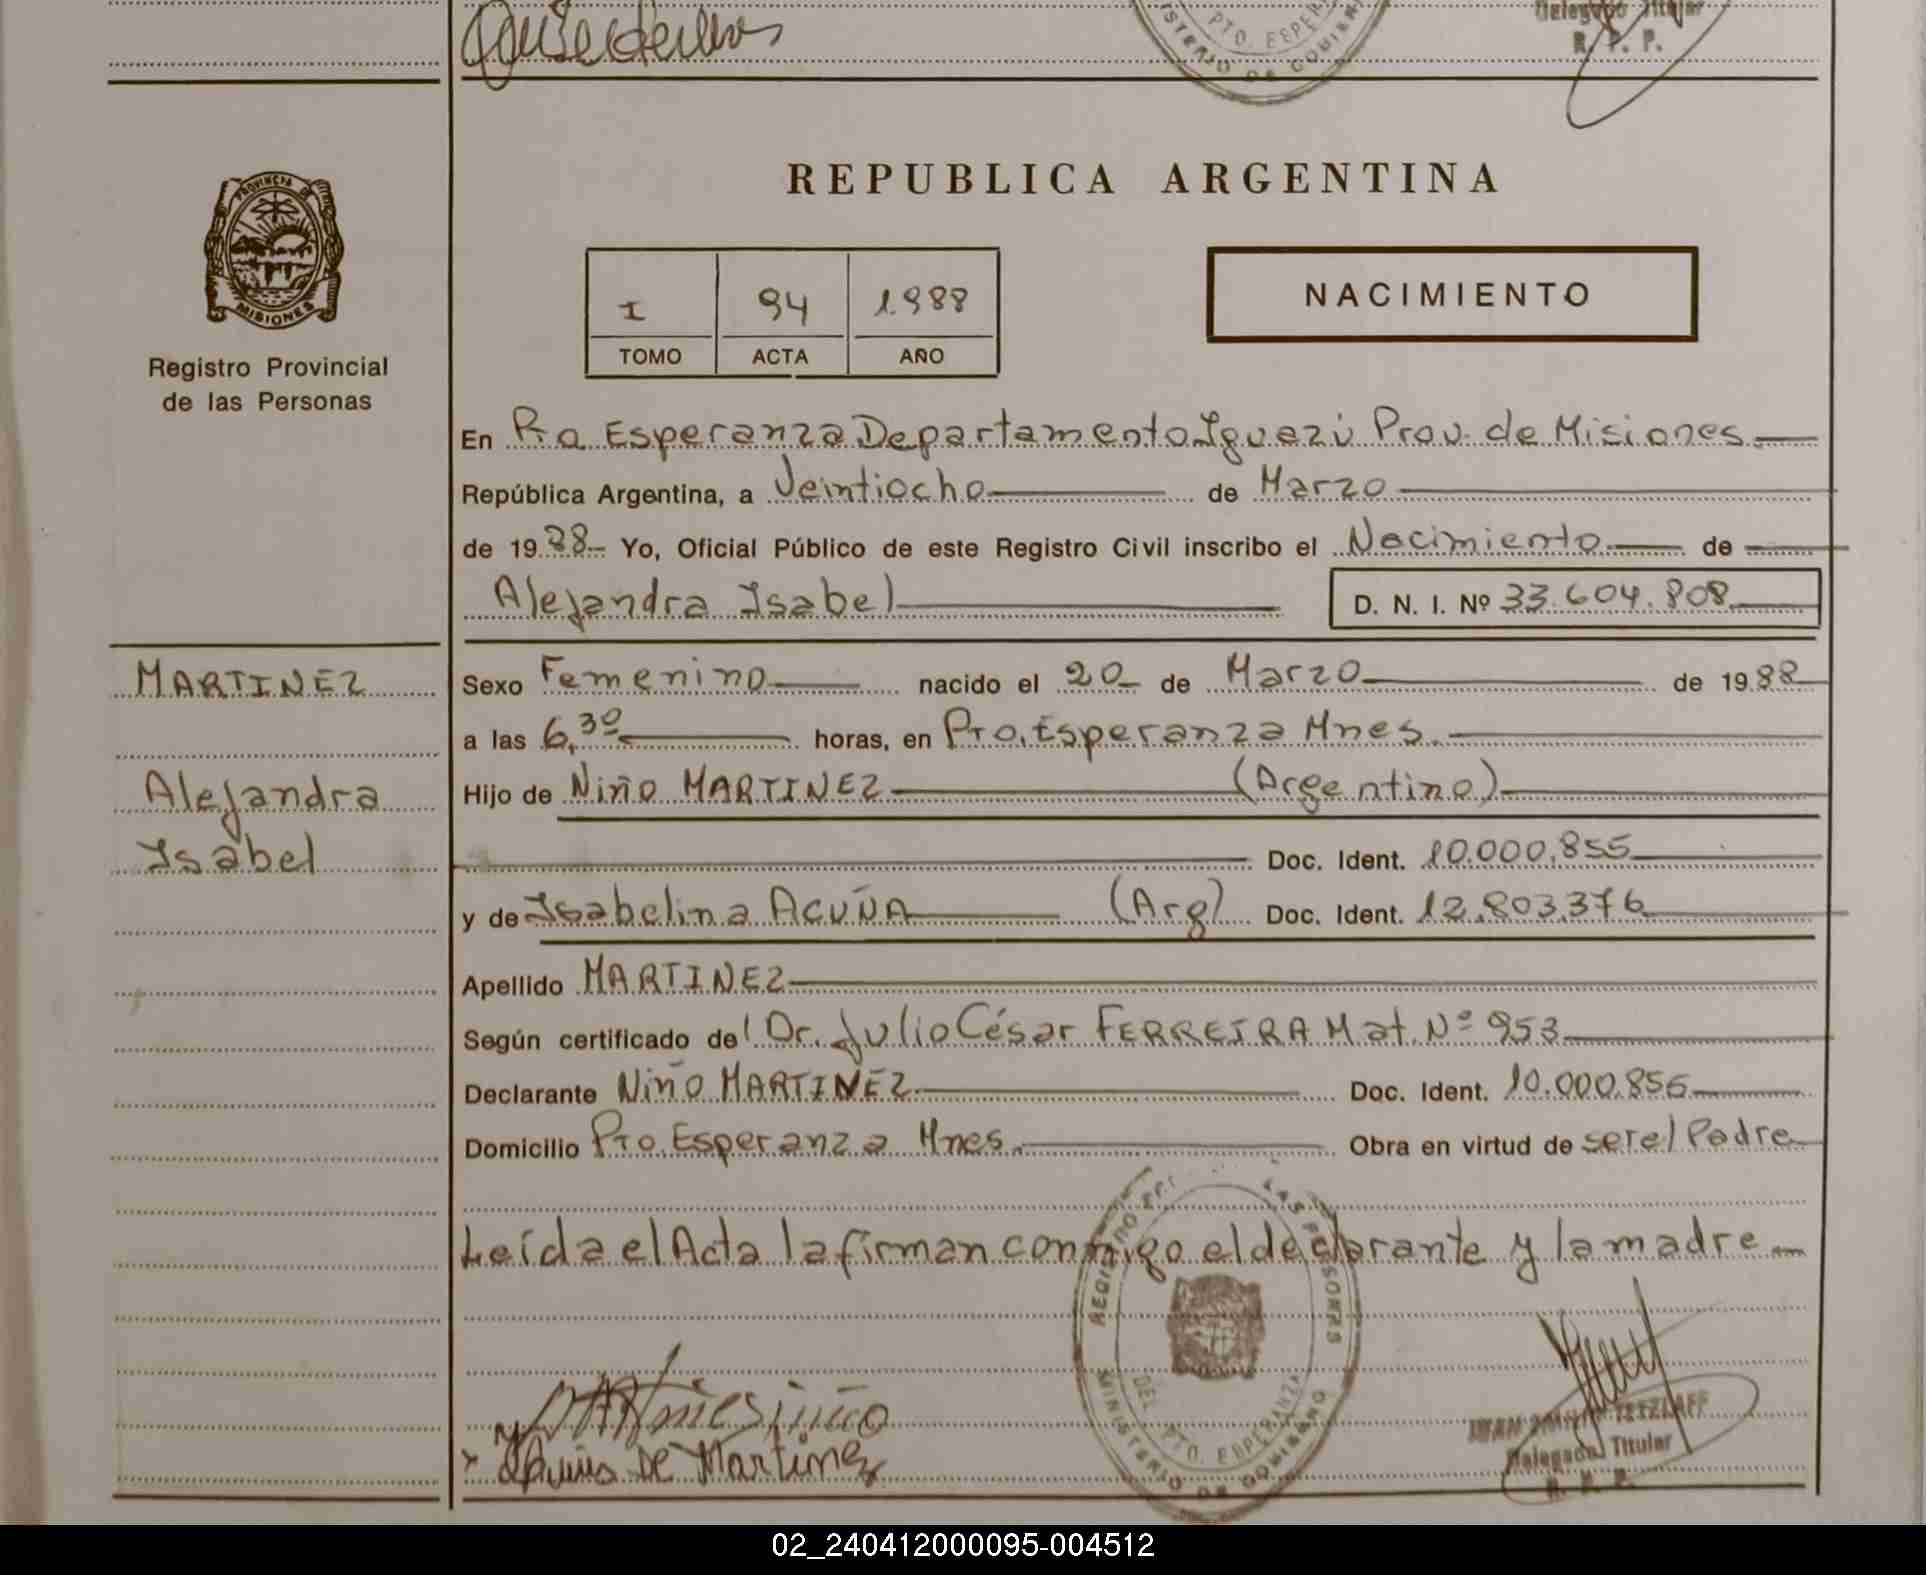 MINISTERIO DE GOBIERNO
PTO. ESPERANZA
Delegado Titular
R. P. P.
PROVINCIA DE
MISIONES
Registro Provincial
de las Personas
REPUBLICA ARGENTINA
I 94 1.988
TOMO ACTA AÑO
NACIMIENTO
En Pto Esperanza Departamento Iguazú Prov. de Misiones.
República Argentina, a Veintiocho de Marzo
de 1988 Yo, Oficial Público de este Registro Civil inscribo el Nacimiento de
Alejandra Isabel D. N. I. Nº 33.604.808
MARTINEZ
Alejandra
Isabel
Sexo Femenino nacido el 20 de Marzo de 1988
a las 6,30 horas, en Pto. Esperanza Mnes.
Hijo de Niño MARTINEZ (Argentino)
Doc. Ident. 10.000.855
y de Isabelina ACUÑA (Arg) Doc. Ident. 12.803.376
Apellido MARTINEZ
Según certificado del Dr. Julio César FERREIRA Mat. Nº 953
Declarante Niño MARTINEZ Doc. Ident. 10.000.855
Domicilio Pto. Esperanza Mnes. Obra en virtud de ser el Padre
Leída el Acta la firman conmigo el declarante y la madre
REGISTRO LAS PERSONAS
DEL PTO. ESPERANZA
MINISTERIO DE GOBIERNO
De Martinez
TETZLAFF
Delegado Titular
R. P. P.
02_240412000095-004512